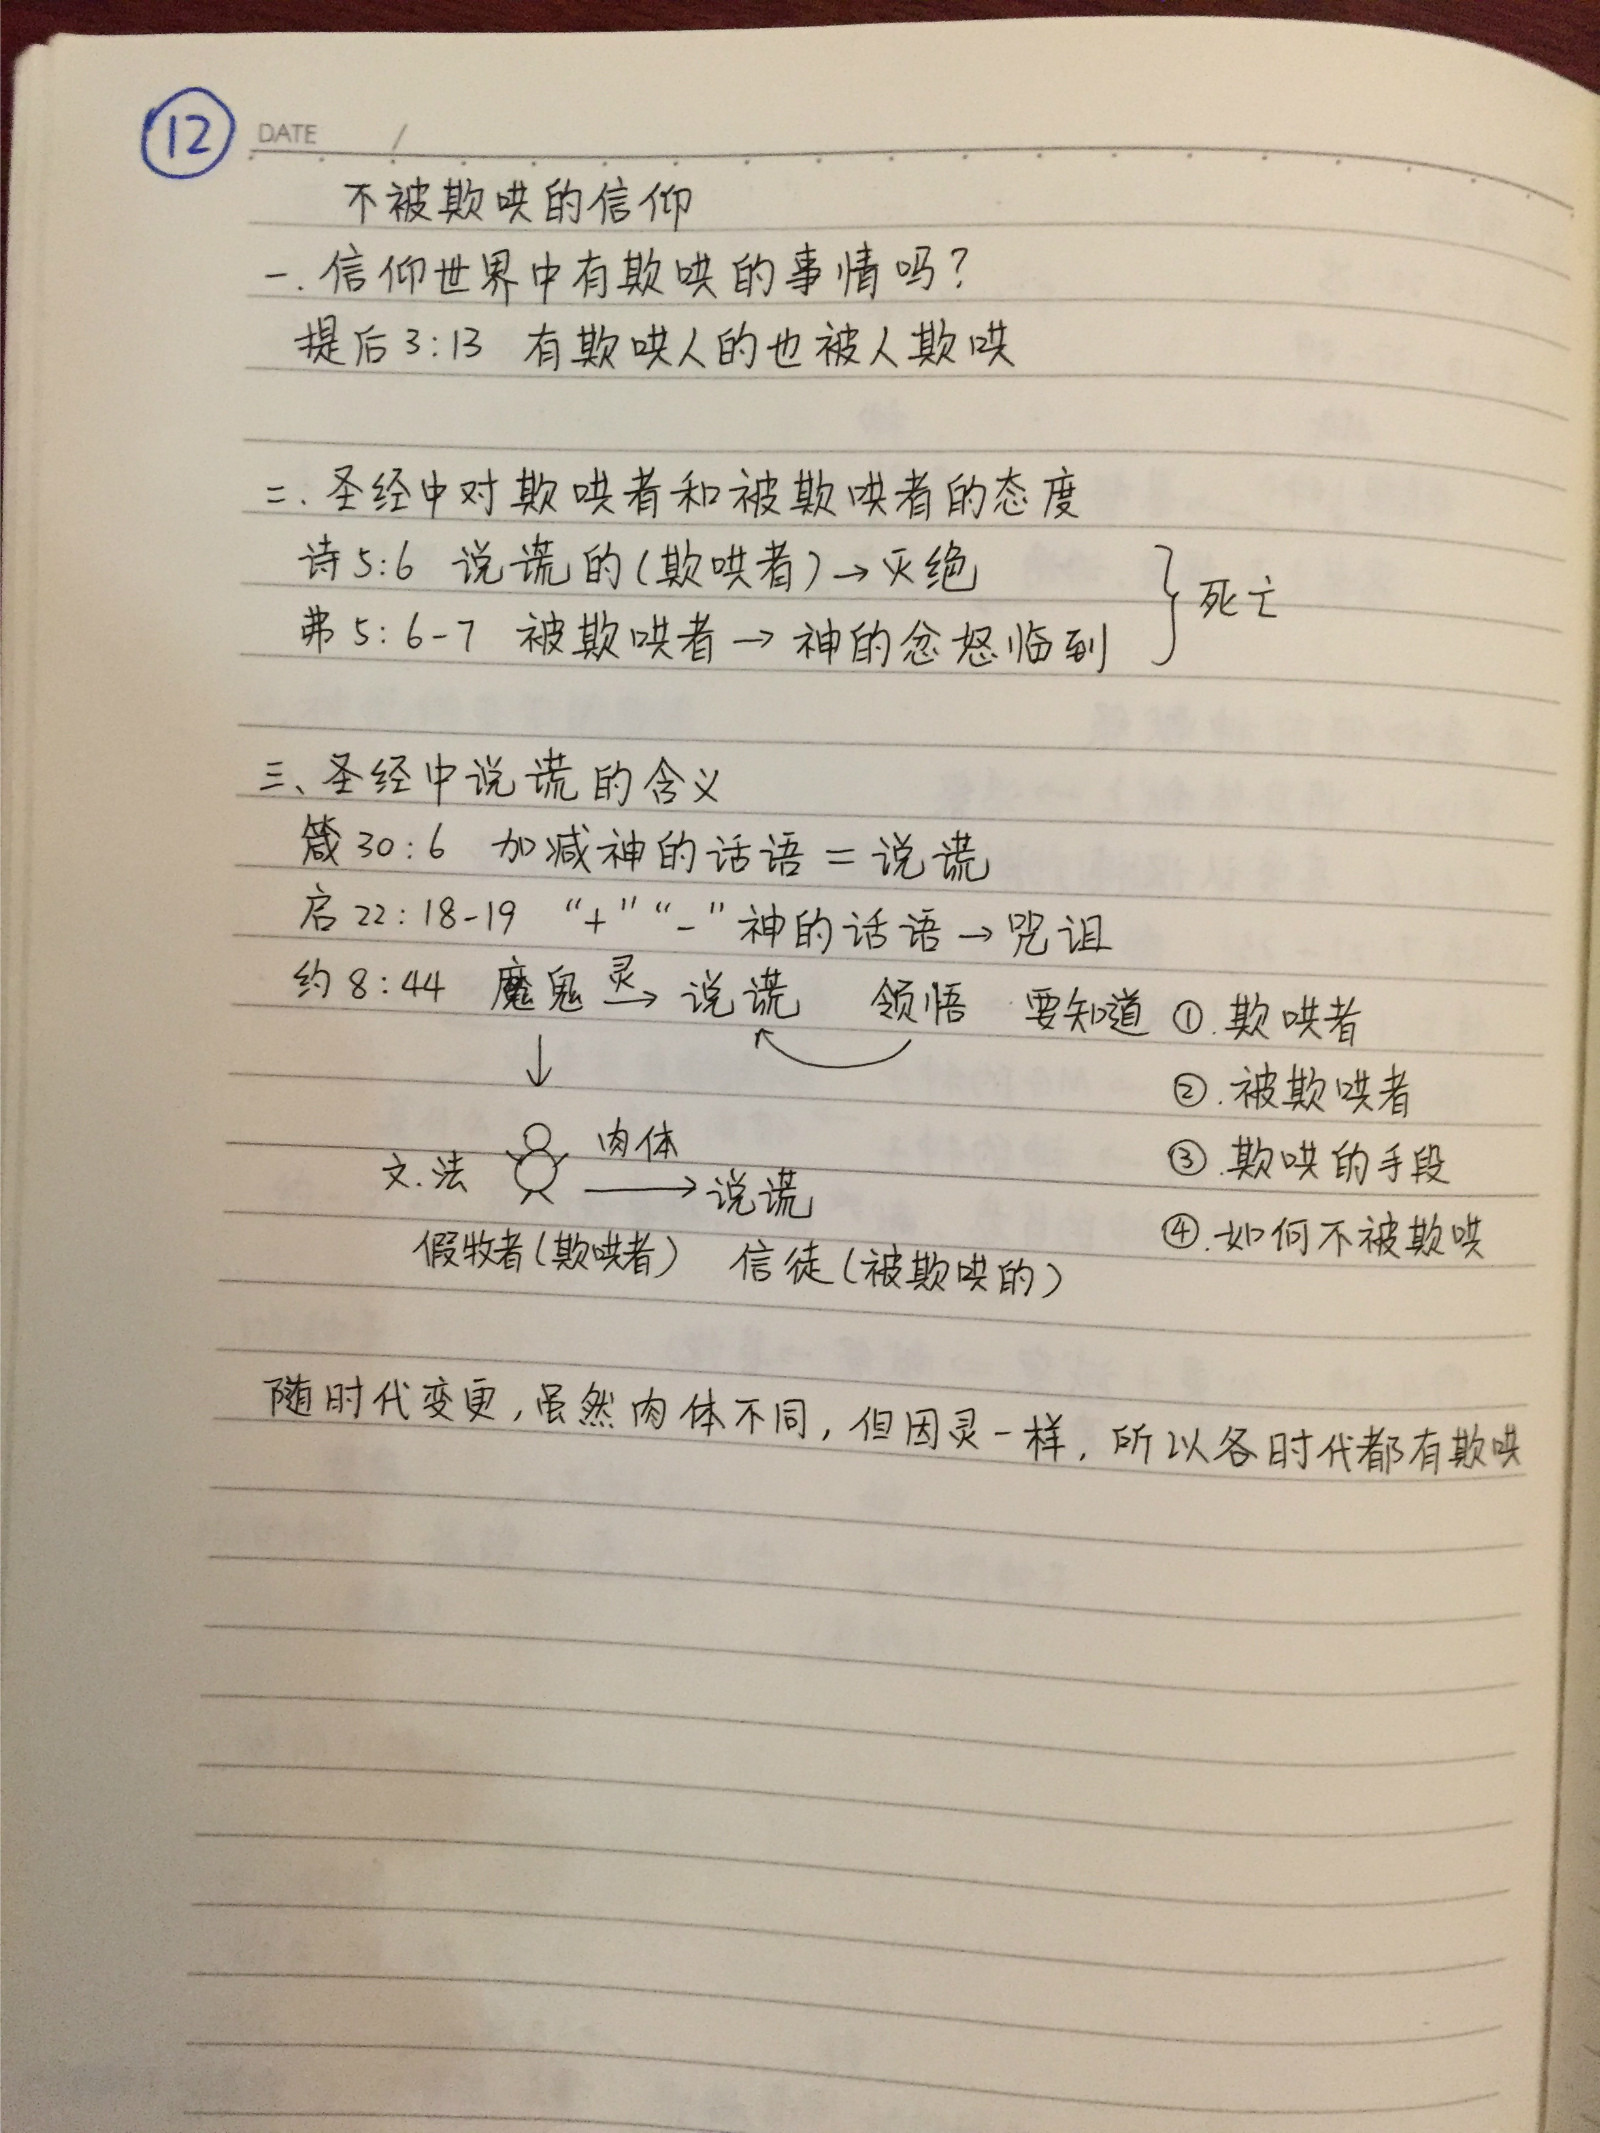 12 DATE /
不被欺哄的信仰
一.信仰世界中有欺哄的事情吗?
提后3:13 有欺哄人的也被人欺哄
二.圣经中对欺哄者和被欺哄者的态度
诗5:6 说谎的(欺哄者)→灭绝
弗5:6-7 被欺哄者→神的忿怒临到 } 死亡
三、圣经中说谎的含义
箴30:6 加减神的话语=说谎
启22:18-19 “+”“-”神的话语→咒诅
约8:44 魔鬼 灵→ 说谎 领悟 要知道 ①.欺哄者
②.被欺哄者
③.欺哄的手段
④.如何不被欺哄
文.法 肉体→说谎
假牧者(欺哄者) 信徒(被欺哄的)
随时代变更,虽然肉体不同,但因灵一样,所以各时代都有欺哄